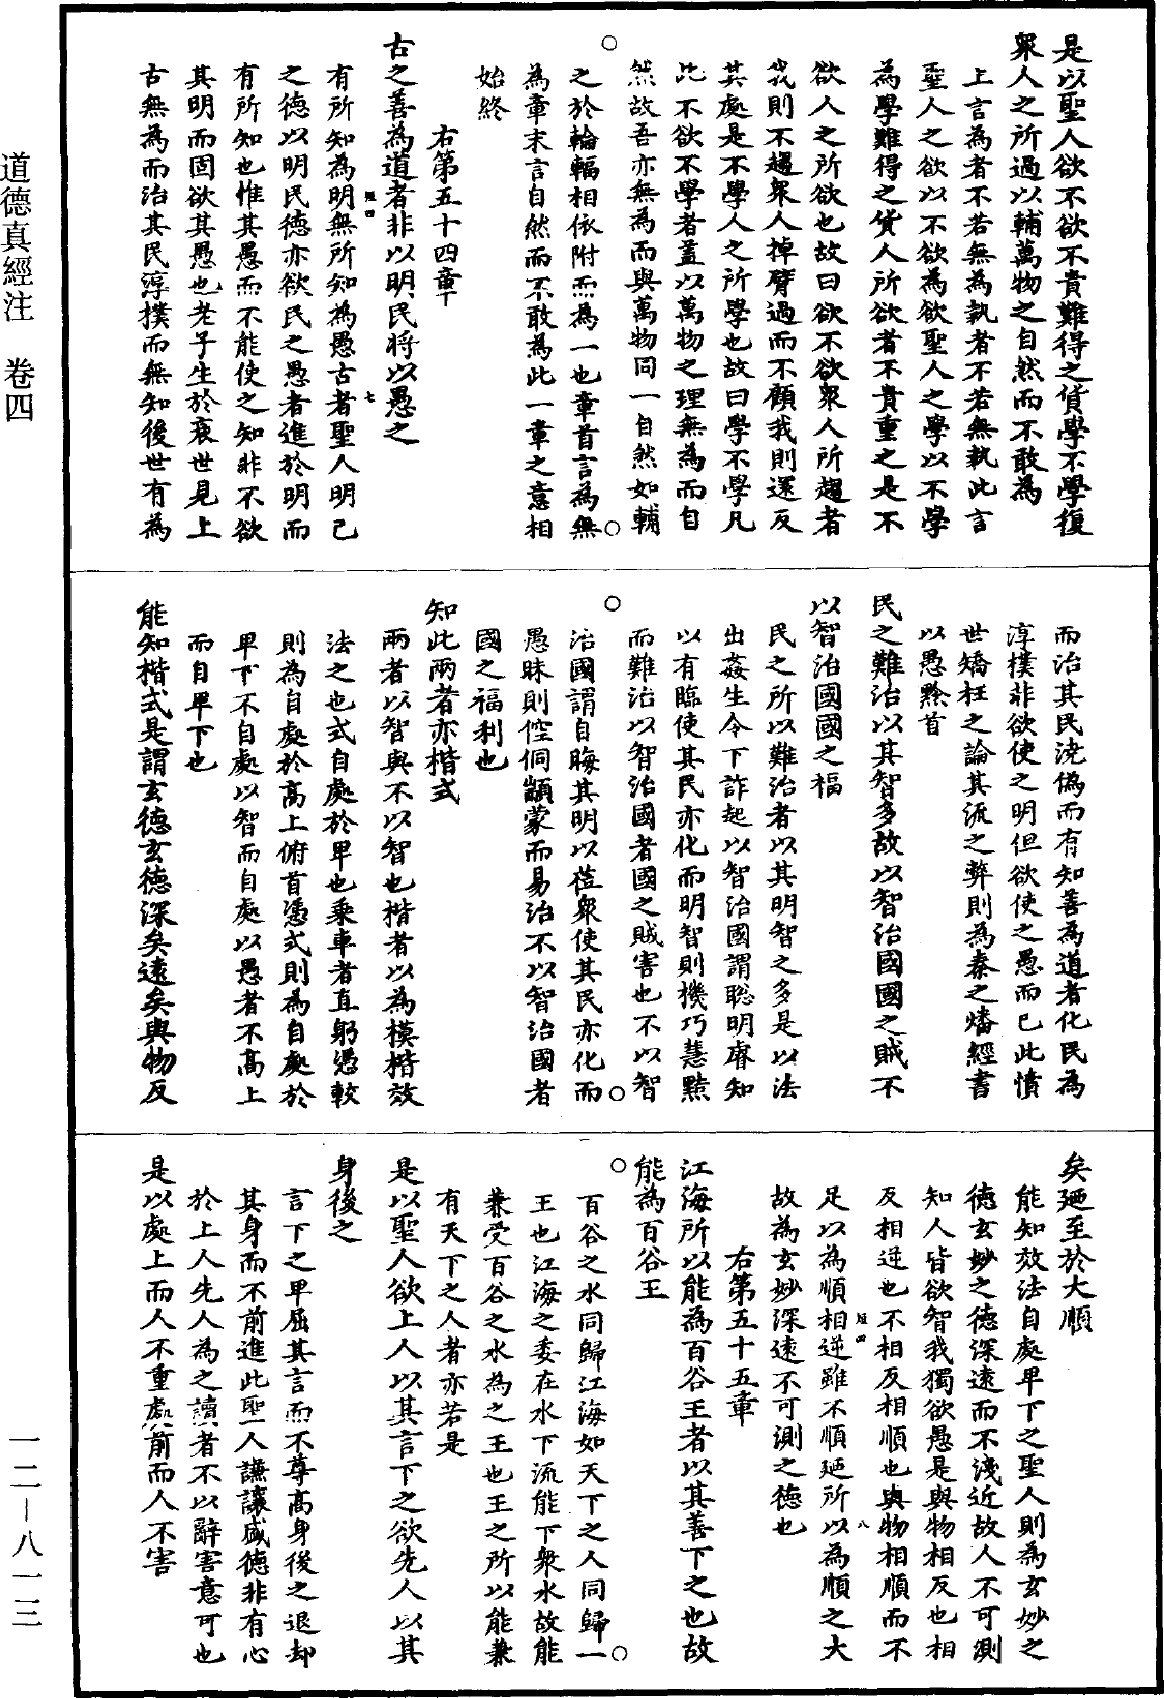 是以聖人欲不欲不貴難得之貨學不學復
衆人之所過以輔萬物之自然而不敢為
上言為者不若無為執者不若無執此言
聖人之欲以不欲為欲聖人之學以不學
為學難得之貨人所欲者不貴重之是不
欲人之所欲也故曰欲不欲衆人所趨者
我則不趨衆人掉臂過而不顧我則還反
其處是不學人之所學也故曰學不學凡
此不欲不學者蓋以萬物之理無為而自
然故吾亦無為而與萬物同一自然如輔
之於輪輻相依附而為一也章首言為無
為章末言自然而不敢為此一章之意相
始終
右第五十四章
古之善為道者非以明民將以愚之
有所知為明無所知為愚古者聖人明己
之德以明民德亦欲民之愚者進於明而
有所知也惟其愚而不能使之知非不欲
其明而固欲其愚也老子生於衰世見上
古無為而治其民淳樸而無知後世有為
而治其民澆偽而有知善為道者化民為
淳樸非欲使之明但欲使之愚而已此憤
世矯枉之論其流之弊則為秦之燔經書
以愚黔首
民之難治以其智多故以智治國國之賊不
以智治國國之福
民之所以難治者以其明智之多是以法
出姦生令下詐起以智治國謂聡明睿知
以有臨使其民亦化而明智則機巧慧黠
而難治以智治國者國之賊害也不以智
治國謂自晦其明以蒞衆使其民亦化而
愚昧則倥侗顓蒙而易治不以智治國者
國之福利也
知此兩者亦楷式
兩者以智與不以智也楷者以為模楷效
法之也式自處於卑也乘車者直躬憑較
則為自處於高上俯首憑式則為自處於
卑下不自處以智而自處以愚者不高上
而自卑下也
能知楷式是謂玄德玄德深矣遠矣與物反
矣廼至於大順
能知效法自處卑下之聖人則為玄妙之
德玄妙之德深遠而不淺近故人不可測
知人皆欲智我獨欲愚是與物相反也相
反相逆也不相反相順也與物相順而不
足以為順相逆雖不順廼所以為順之大
故為玄妙深遠不可測之德也
右第五十五章
江海所以能為百谷王者以其善下之也故
能為百谷王
百谷之水同歸江海如天下之人同歸一
王也江海之委在水下流能下衆水故能
兼受百谷之水為之王也王之所以能兼
有天下之人者亦若是
是以聖人欲上人以其言下之欲先人以其
身後之
言下之卑屈其言而不尊高身後之退却
其身而不前進此聖人謙讓盛德非有心
於上人先人為之讀者不以辭害意可也
是以處上而人不重處前而人不害
道德真經注　卷四
一二—八一三